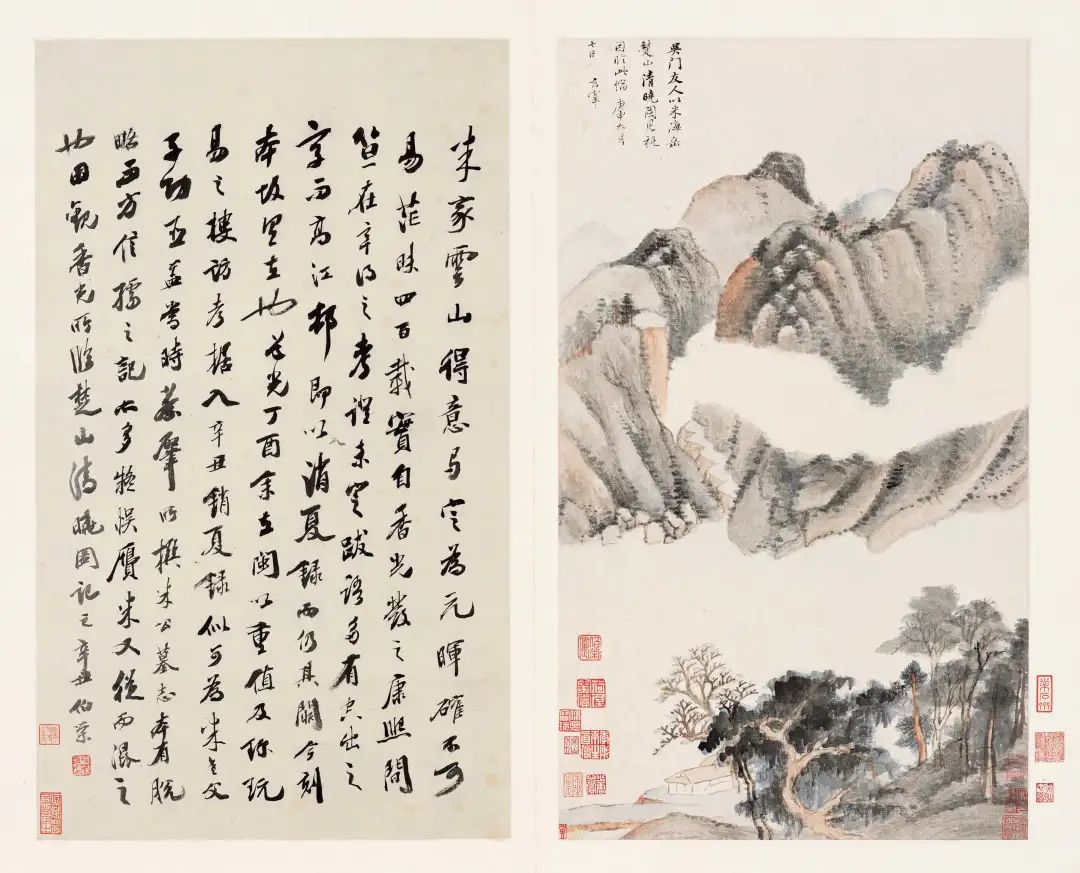 吳門友人以米海岳
楚山清曉圖見
因臨此幅 庚申九月
七日 玄宰
米家雲山得意定為元暉確不可
易茫昧四百載實自香光發之康熙間
笪在辛得之考證未定跋語多有空出之
字而高江邨即以消夏錄而仍其闕今刻
本故在也道光丁酉余在閩以重值及珎玩
易之摟訪考據入辛丑銷夏錄似可為米老父
子功臣蓋當時蔡肇所撰米公墓志本有脫
略而方信孺之記亦多疑悞贗米又從而溷之
也因觀香光所臨楚山清曉圖記之辛丑伯榮